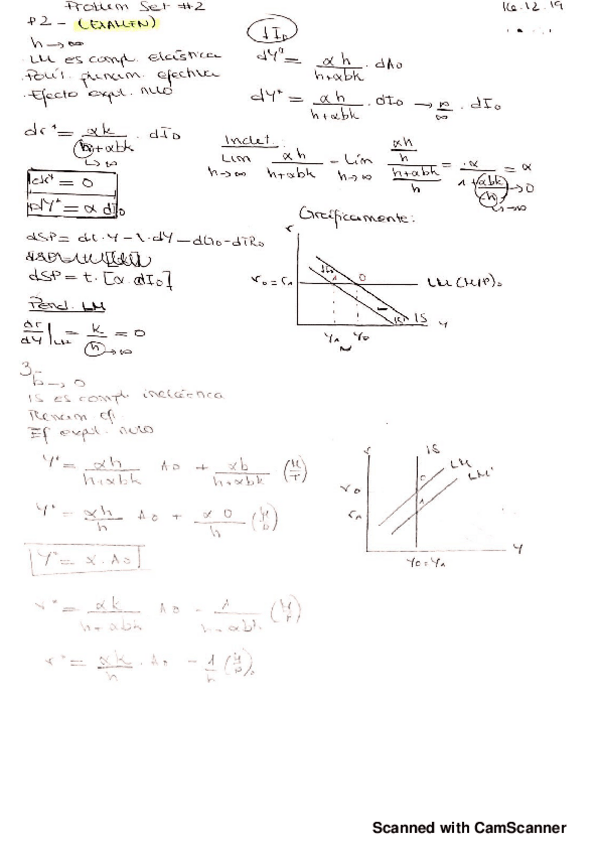 Problem Set #2
16.12.19
P2 - (EXAMEN)
↓I₀
h→∞
· LM es compl. elástica
· Polít. efectiva
· Efecto expl. nulo
dY* = αh / (h+αbk) · dA₀
dY* = αh / (h+αbk) · dI₀ → ∞/∞ · dI₀
dr* = αk / (h+αbk) · dI₀
→∞
Indet.:
Lim h→∞ αh / (h+αbk) - Lim h→∞ (αh/h) / ((h+αbk)/h) = α / (1 + (αbk)/(h)) = α
→0
→∞
dr* = 0
dY* = α dI₀
dSP = dt · Y - t · dY - dG₀ - dTR₀
dSP = t · [α dI₀]
Pend. LM
dr/dY |LM = k/h = 0
→∞
Gráficamente:
r
r₀ = r₁
1
0
LM (M/P)₀
IS
Y₁ Y₀
Y
3-
b → 0
IS es compl. inelástica
Ef expl. nulo
Y* = αh / (h+αbk) A₀ + αb / (h+αbk) (M/P)
Y* = αh / h A₀ + α 0 / h (M/P)
Y* = α · A₀
r* = αk / (h+αbk) A₀ - 1 / (h+αbk) (M/P)
r* = αk / h · A₀ - 1/h (M/P)₀
r
IS
LM
LM'
r₀
r₁
Y₀ = Y₁
Y
Scanned with CamScanner